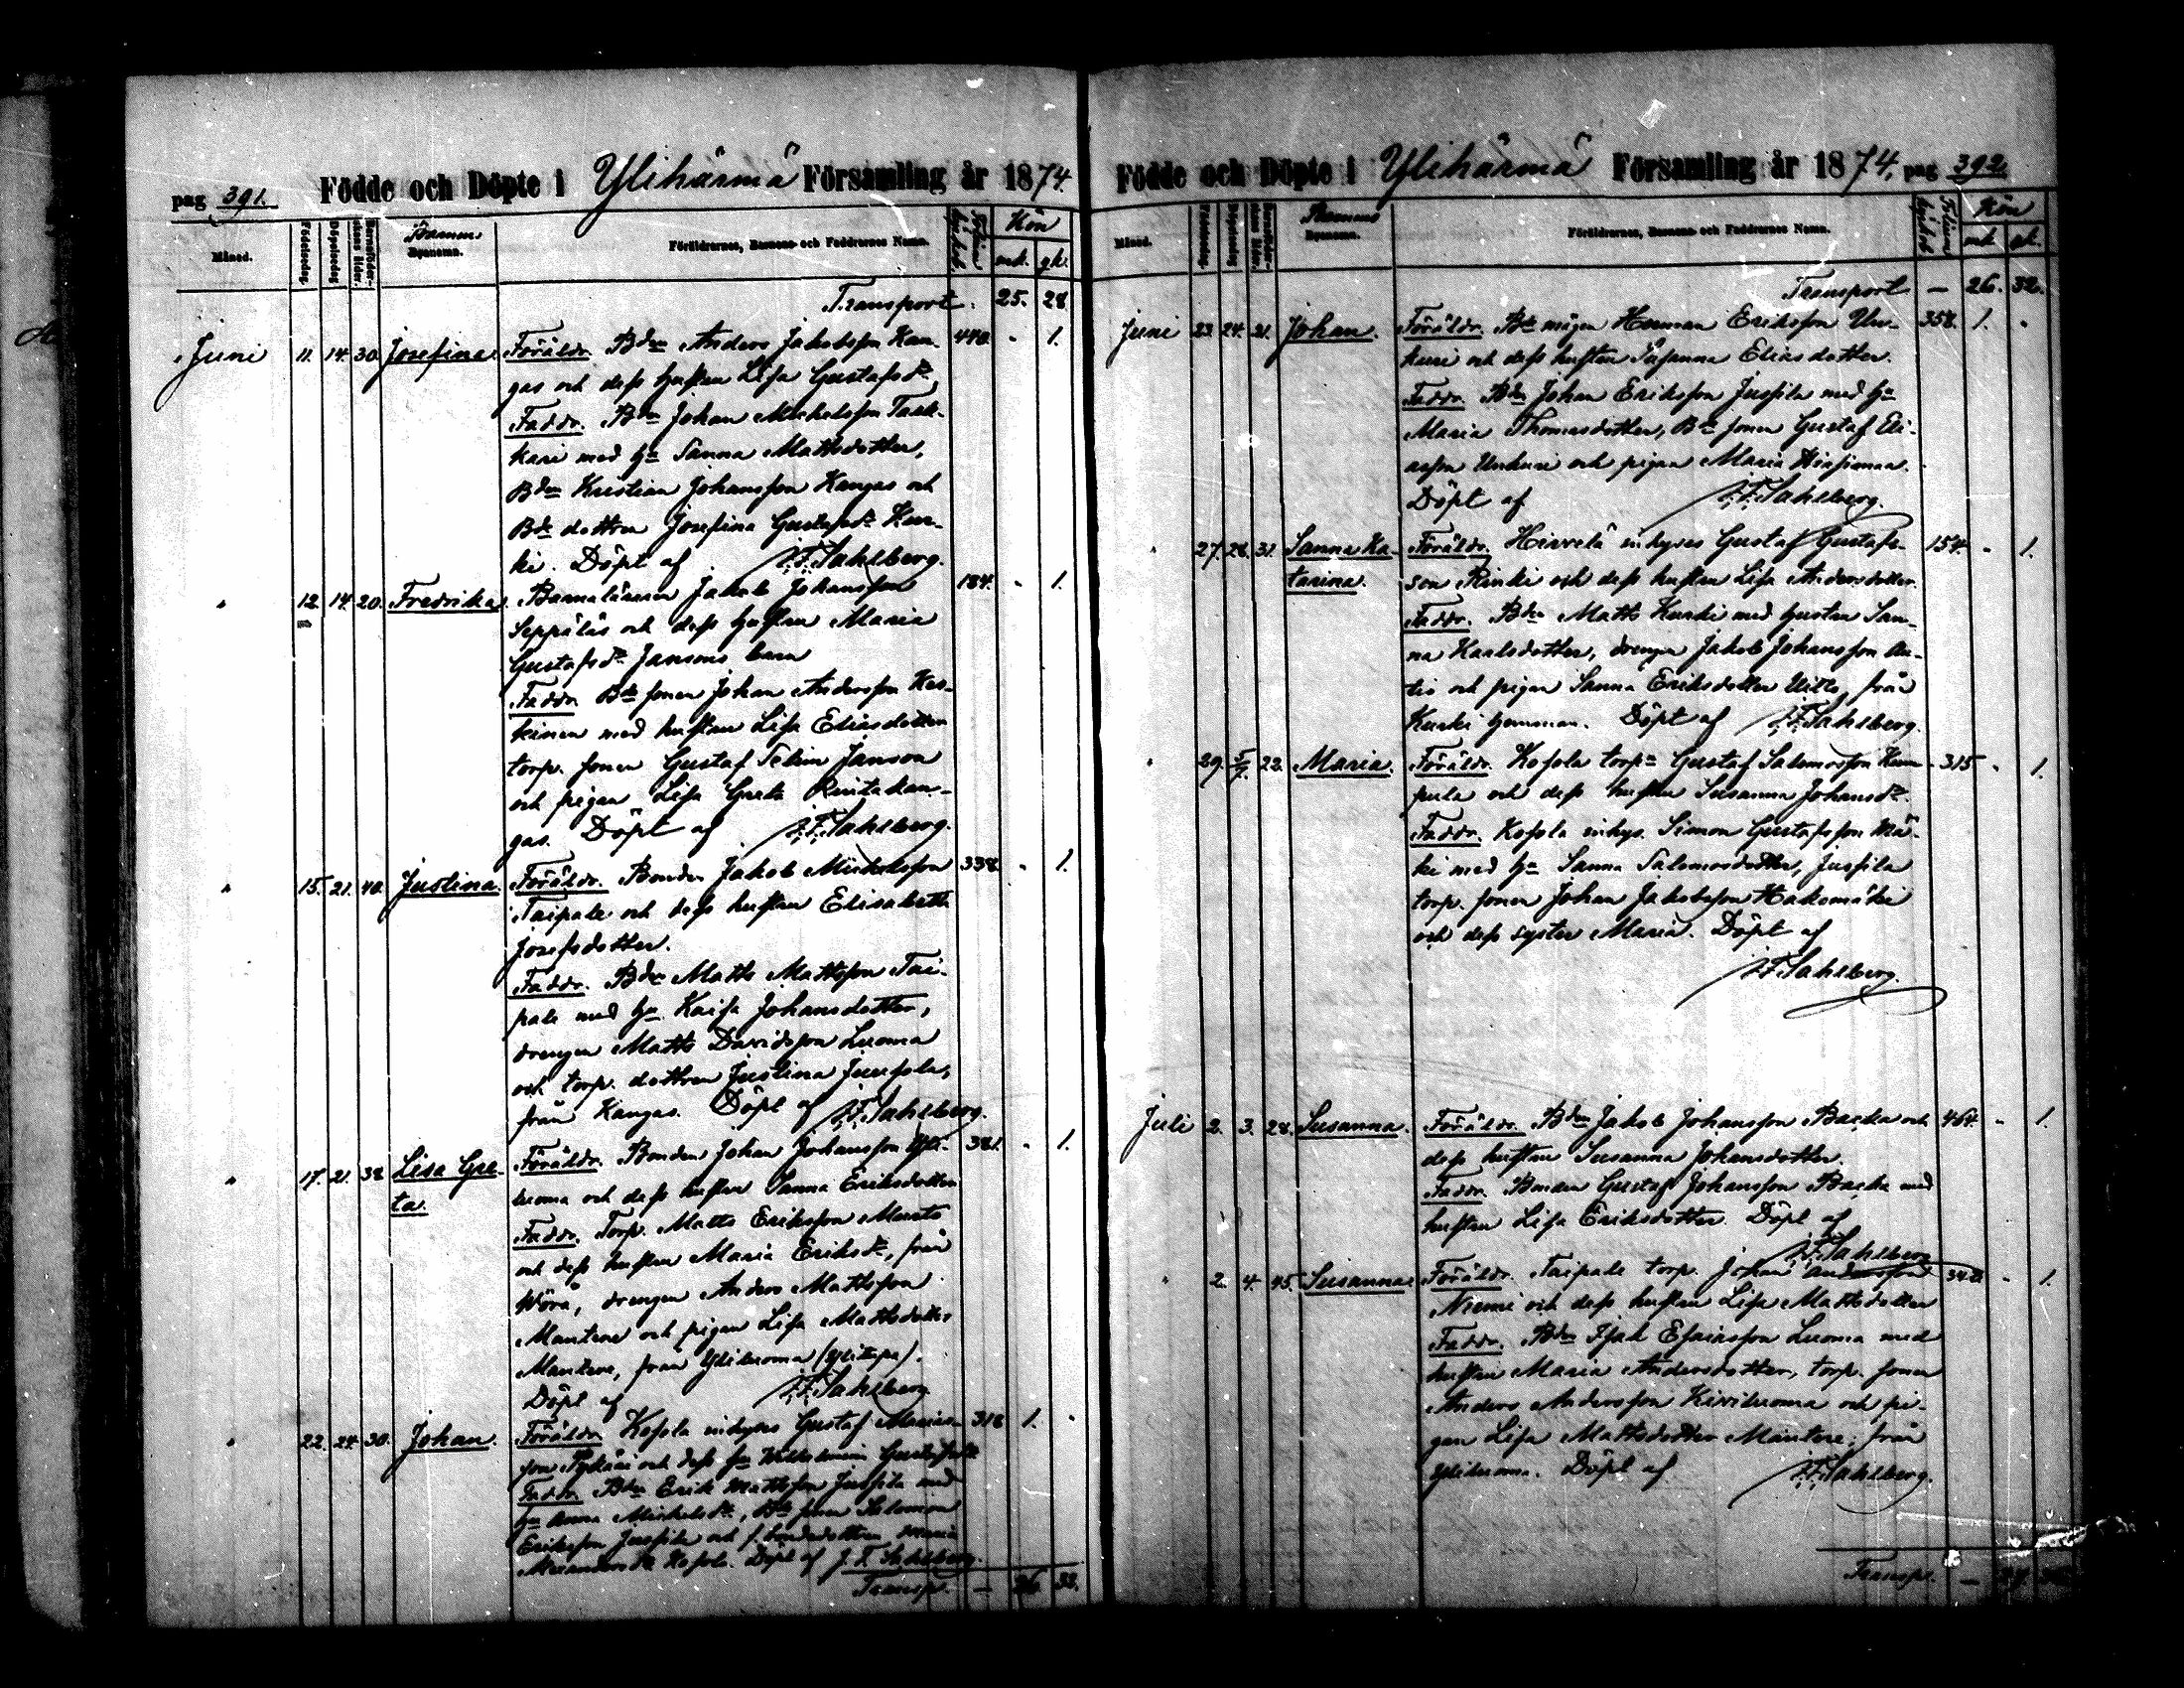 pag 391. Födde och Döpte i Ylihärmä Församling år 1874.
Månad. Födelsedag. Döpelsedag. Barnaföderskans ålder. Barnens Föräldrarnes, Barnens och Faddrarnes Namn. Kön
mk. qk.
Transport. 25. 28
Juni 11. 14. 30. Josefina. Föräldr. Bdn Anders Jakobsson Kan- 440. - 1.
gas och dess hustru Lisa Gustafsdr
Faddr. Bdn Johan Michelsson Taak-
kari med ha Sanna Mattsdotter,
Bdn Kristian Johansson Kangas och
Bde dottren Josefina Gustafsdr Kur-
ki. Döpt af J. F. Sahlberg.
" 12. 14. 20. Fredrika. Barnaläraren Jakob Johansson 184. - 1.
Seppäläs och dess hustru Maria
Gustafsdr Jansons barn
Faddr. Bde sonen Johan Andersson Kes-
kinen med hustrun Lisa Eliasdotter
torp. sonen Gustaf Selim Janson
och pigan Lisa Greta Rintakan-
gas. Döpt af J. F. Sahlberg.
" 15. 21. 40. Justina. Föräldr. Bonden Jakob Michelsson 338. - 1.
Taipale och dess hustru Elisabeth
Josefsdotter.
Faddr. Bdn Matts Mattsson Tai-
pale med ha Kaisa Johansdotter,
drengen Matts Davidsson Luoma
och torp. dottren Justina Juufola,
från Kangas. Döpt af J. F. Sahlberg.
" 17. 21. 38. Lisa Gre- Föräldr. Bonden Johan Johansson Yli- 381. - 1.
ta. luoma och dess hustru Sanna Eriksdotter
Faddr. Torp. Matts Eriksson Musto
och dess hustru Maria Eriksdr, från
Wörå, drengen Anders Mattsson
Mantere och pigan Lisa Mattsdotter
Mantere, från Yliluoma
Döpt af J. F. Sahlberg
" 22. 24. 30. Johan. Föräldr. Kosola inhyses Gustaf 318 1. -
son och dess ha Wilhelmina Gustafsdr
Faddr. Bdn Erik Mattsson Jussila med
ha Anna Michelsdr, Bde sonen Salomon
Eriksson Jussila och
Kosola. Döpt af J. F. Sahlberg.
Transp. — 26. 32.
Födde och Döpte i Ylihärmä Församling år 1874, pag 392.
Månad. Födelsedag. Döpelsedag. Barnaföderskans ålder. Barnens Föräldrarnes, Barnens och Faddrarnes Namn. Kön
mk. qk.
Transport — 26. 32.
Juni 23. 24. 21. Johan. Föräldr. Bde mågen Herman Eriksson Un- 358. 1. -
kuri och dess hustru Susanna Eliasdotter.
Faddr. Bdn Johan Eriksson Jussila med ha
Maria Thomasdotter, Bde sonen Gustaf Eli-
asson Unkuri och pigan Maria
Döpt af J. F. Sahlberg.
" 27. 28. 31. Sanna Ka- Föräldr. Hirvelä inhyses Gustaf Gustafs- 154. - 1.
tarina. son Rinki och dess hustru Lisa Andersdotter.
Faddr. Bdn Matts Kurki med hustru San-
na Karlsdotter, drengen Jakob Johansson An-
tio och pigan Sanna Eriksdotter Uitto, från
Kurki hemman. Döpt af J. F. Sahlberg.
" 29. 5/7. 22. Maria. Föräldr. Kosola torpn Gustaf Salomosson Kum- 315 - 1.
pula och dess hustru Susanna Johansdr.
Faddr. Kosola inhys. Simon Gustafsson Mä-
ki med ha Sanna Salomosdotter, Jussila
torp. sonen Johan Jakobsson Hakomäki
och dess syster Maria. Döpt af
J. F. Sahlberg.
Juli 2. 3. 28. Susanna. Föräldr. Bdn Jakob Johansson Backa och 464. - 1.
dess hustru Susanna Johansdotter.
Faddr. Bonden Gustaf Johansson Backa med
hustru Lisa Eriksdotter. Döpt af
J. F. Sahlberg
" 2. 4. 45. Susanna. Föräldr. Taipale torp. Johan Andersson 340. - 1.
Niemi och dess hustru Lisa Mattsdotter
Faddr. Bdn Isak Esaiasson Luoma med
hustru Maria Andersdotter, torp. sonen
Anders Andersson Kiviluoma och pi-
gan Lisa Mattsdotter Mantere, från
Yliluoma. Döpt af J. F. Sahlberg.
Transp. —